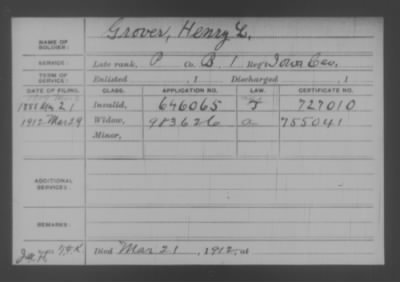 NAME OF SOLDIER: Grover, Henry L.
SERVICE: Late rank, P Co. B, 1 Reg't Iowa Cav.
TERM OF SERVICE: Enlisted , 1 Discharged , 1
DATE OF FILING. CLASS. APPLICATION NO. LAW. CERTIFICATE NO.
1888 21 Invalid, 646065 J 727010
1912 Mar 29 Widow, 983626 a 755041
Minor,
ADDITIONAL SERVICES:
REMARKS:
Died Mar 21, 1912, at